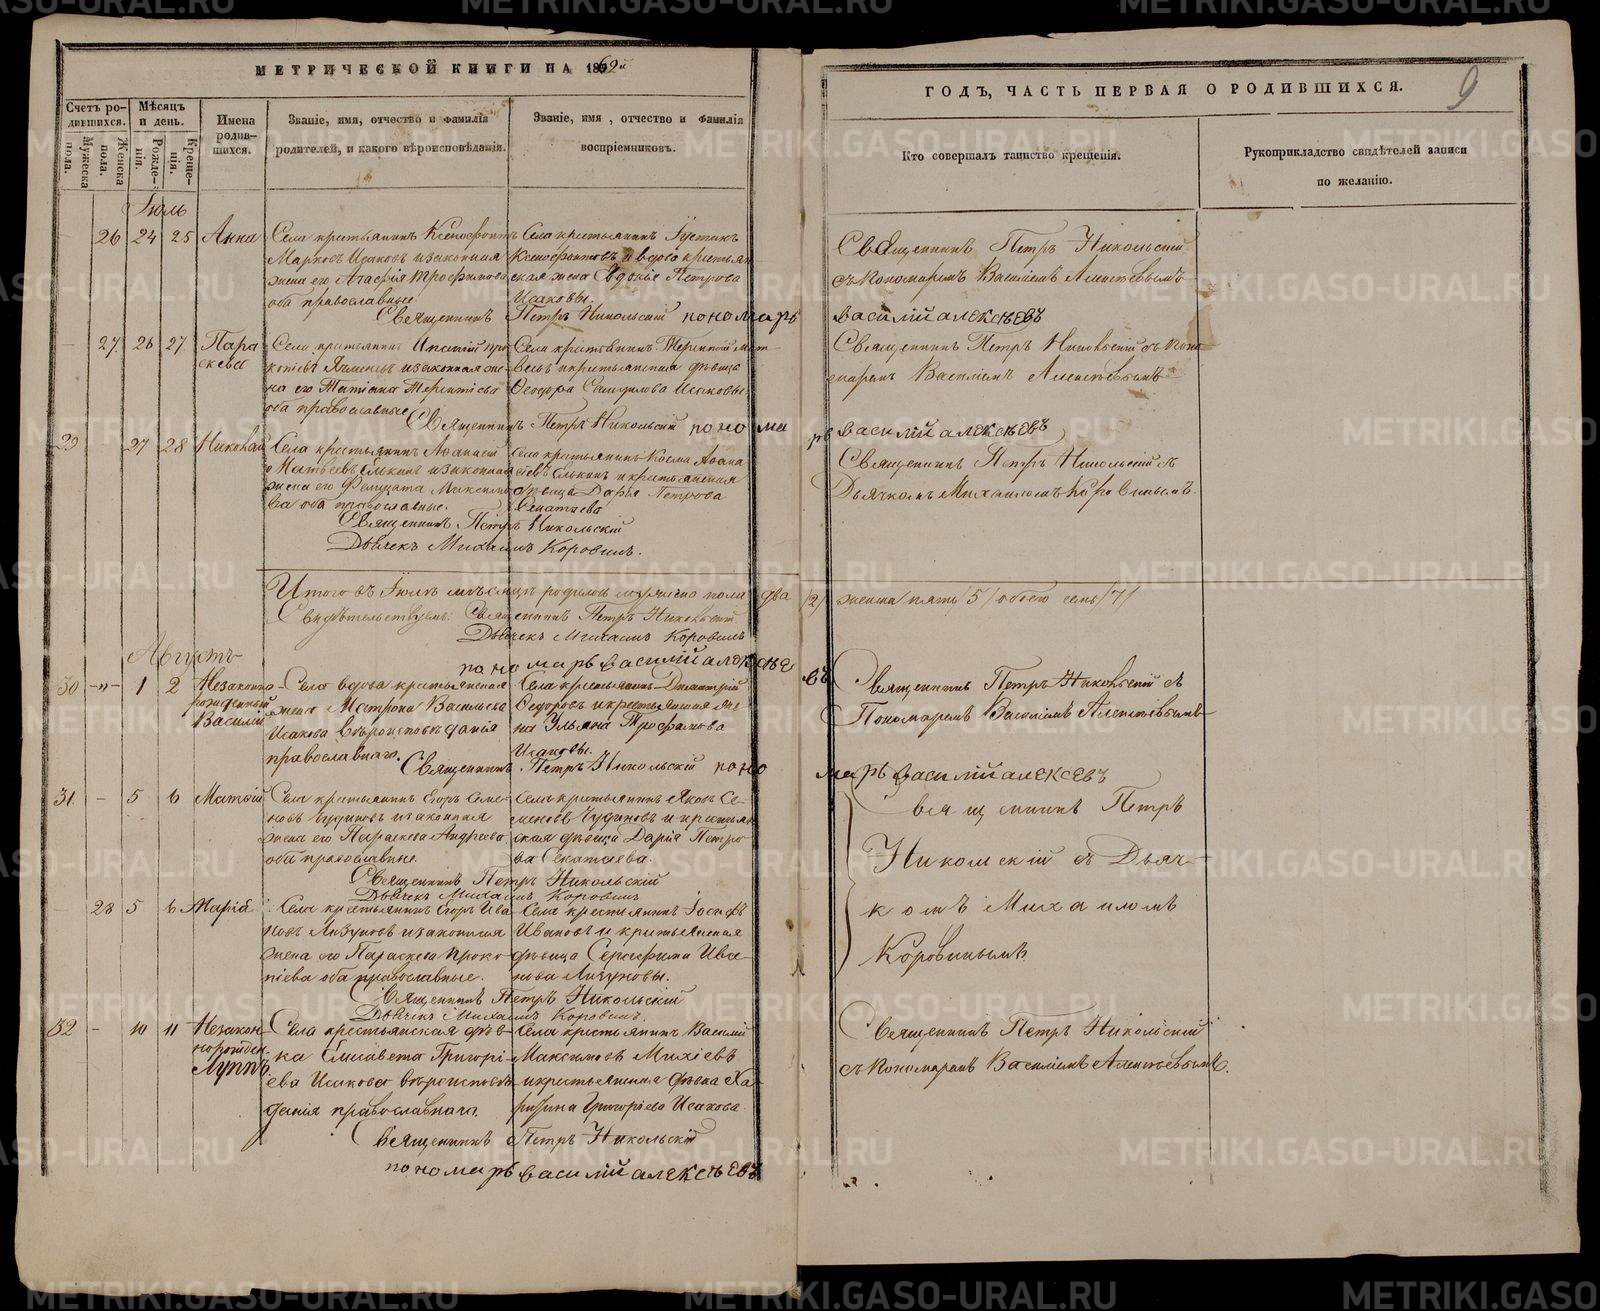 МЕТРИЧЕСКОЙ КНИГИ НА 1869й
ГОДЪ, ЧАСТЬ ПЕРВАЯ О РОДИВШИХСЯ.
9
Счетъ ро-
дившихся.
Мужеска пола.
Женска пола.
Мѣсяцъ
и день.
Рожде-
нія.
Креще-
нія.
Имена
родив-
шихся.
Званіе, имя, отчество и фамилія
родителей, и какого вѣроисповѣданія.
Званіе, имя, отчество и фамилія
воспріемниковъ.
Кто совершалъ таинство крещенія.
Рукоприкладство свидѣтелей записи
по желанію.
Іюль
26 24 25 Анна
Села крестьянинъ Ксенофонтъ
Марковъ Исаковъ и законная
жена его Агафія Трофимова
оба православные.
Села крестьянинъ Іустинъ
Ксенофонтовъ и вдова крестьян
ская жена Евдокія Петрова
Исаковы.
Священникъ Петръ Никольскій
съ Пономаремъ Василіемъ Алексѣевымъ
Священникъ Петръ Никольскій пономарь василій алексѣевъ
27 26 27 Пара
скева
Села крестьянинъ
и законная же
на его Татіана Терентіева
оба православные
Села крестьянинъ Терентій Мат
вѣевъ и крестьянская дѣвица
Ѳеодора Самуилова Исаковы
Священникъ Петръ Никольскій съ Поно
маремъ Василіемъ Алексѣевымъ
Священникъ Петръ Никольскій пономарь василій алексѣевъ
29 27 28 Николай
Села крестьянинъ Аѳанасій
Матвѣевъ Елькинъ и законная
жена его Фелицата Максимо
ва оба православные.
Села крестьянинъ Косма Аѳана
сіевъ Елькинъ и крестьянская
дѣвица Дарья Петрова
Секатаева
Священникъ Петръ Никольскій съ
Дьячкомъ Михаиломъ Коровинымъ.
Священникъ Петръ Никольскій
Дьячекъ Михаилъ Коровинъ.
Итого въ Іюлѣ мѣсяцѣ родилось мужеска пола два /2/ женска пять 5/ обоего семь /7/
Свидѣтельствуемъ: Священникъ Петръ Никольскій
Дьячекъ Михаилъ Коровинъ
пономарь василій алексѣевъ
Августъ
30 -"- 1 2 Незаконно
рожденный
Василій
Села вдова крестьянская
жена Матрона Васильева
Исакова вѣроисповѣданія
православнаго.
Села крестьянинъ Димитрій
Ѳедоровъ и крестьянская же
на Ульяна Трофимова
Исаковы.
Священникъ Петръ Никольскій съ
Пономаремъ Василіемъ Алексѣевымъ
Священникъ Петръ Никольскій пономарь василій алексѣевъ
31 - 5 6 Матѳій
Села крестьянинъ Егоръ Семе-
новъ Чудиновъ и законная
жена его Параскева Андреева
оба православные.
Села крестьянинъ Яковъ Се-
меновъ Чудиновъ и крестьян
ская дѣвица Дарія Петро-
ва Секатаева.
Священникъ Петръ
Никольскій съ Дьяч-
комъ Михаиломъ
Коровинымъ
Священникъ Петръ Никольскій
Дьячекъ Михаилъ Коровинъ
28 5 6 Марія
Села крестьянинъ Егоръ Ива
новъ Лизуновъ и законная
жена его Параскева Проко-
піева оба православные.
Села крестьянинъ Іосифъ
Ивановъ и крестьянская
дѣвица Серафима Ива-
нова Лизуновы.
Священникъ Петръ Никольскій
Дьячекъ Михаилъ Коровинъ.
32 - 10 11 Незакон-
норожден.
Луппъ
Села крестьянская дѣв-
ка Елисавета Григорі-
ева Исакова вѣроисповѣ
данія православнаго.
Села крестьянинъ Василій
Максимовъ Михіевъ
и крестьянская дѣвка Ха-
ритина Григорьева Исакова
Священникъ Петръ Никольскій
съ Пономаремъ Василіемъ Алексѣевымъ.
Священникъ Петръ Никольскій
пономарь василій алексѣевъ
METRIKI.GASO-URAL.RU